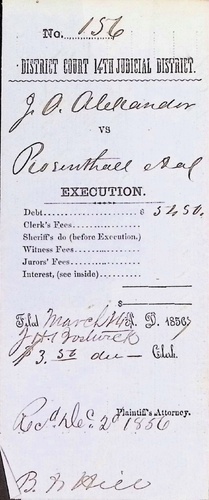 No. 156
DISTRICT COURT 14TH JUDICIAL DISTRICT.
J. O. Alexander
VS
Rosenthall et al
EXECUTION.
Debt $ 54.50.
Clerk's Fees
Sheriff's do (before Execution.)
Witness Fees
Jurors' Fees
Interest, (see inside)
$
Filed March 14 A. D. 1856
$ 3.50 due — Clek.
Plaintiff's Attorney.
Recd Dec 2d 1856
B N Hill